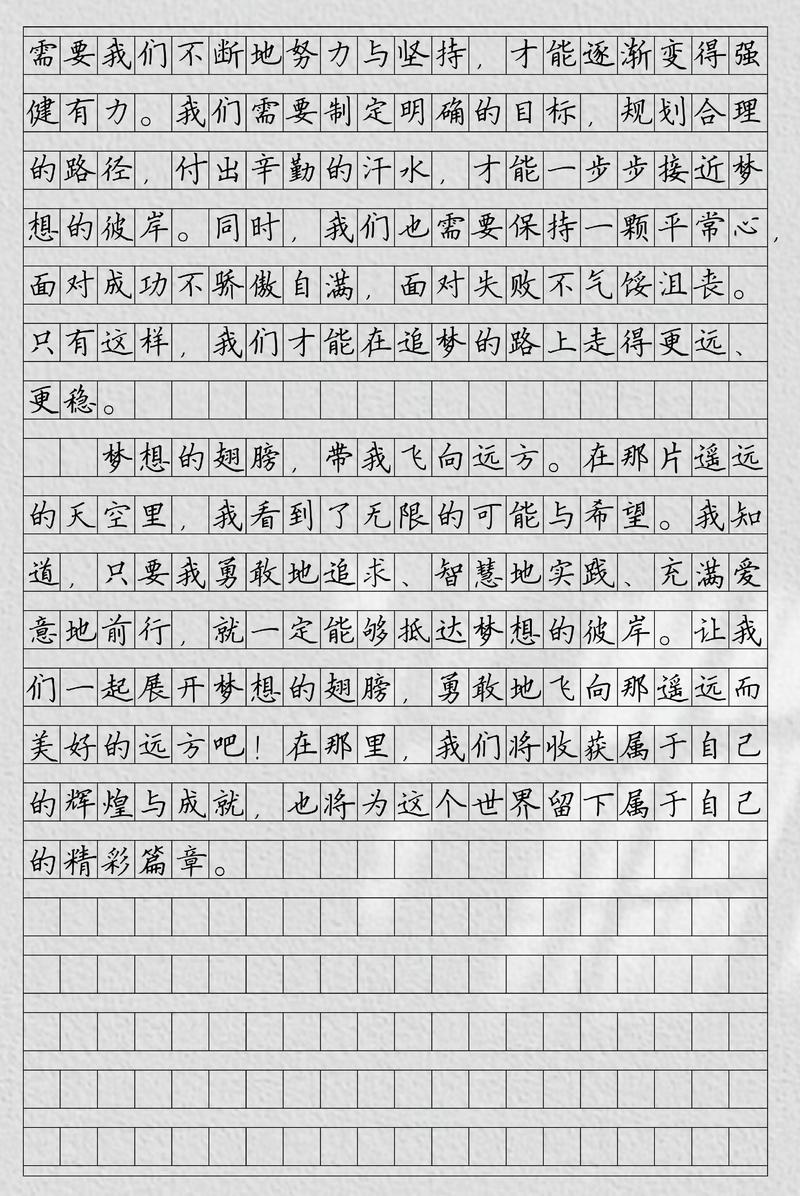 需要我们不断地努力与坚持，才能逐渐变得强
健有力。我们需要制定明确的目标，规划合理
的路径，付出辛勤的汗水，才能一步步接近梦
想的彼岸。同时，我们也需要保持一颗平常心，
面对成功不骄傲自满，面对失败不气馁沮丧。
只有这样，我们才能在追梦的路上走得更远、
更稳。
梦想的翅膀，带我飞向远方。在那片遥远
的天空里，我看到了无限的可能与希望。我知
道，只要我勇敢地追求、智慧地实践、充满爱
意地前行，就一定能够抵达梦想的彼岸。让我
们一起展开梦想的翅膀，勇敢地飞向那遥远而
美好的远方吧！在那里，我们将收获属于自己
的辉煌与成就，也将为这个世界留下属于自己
的精彩篇章。